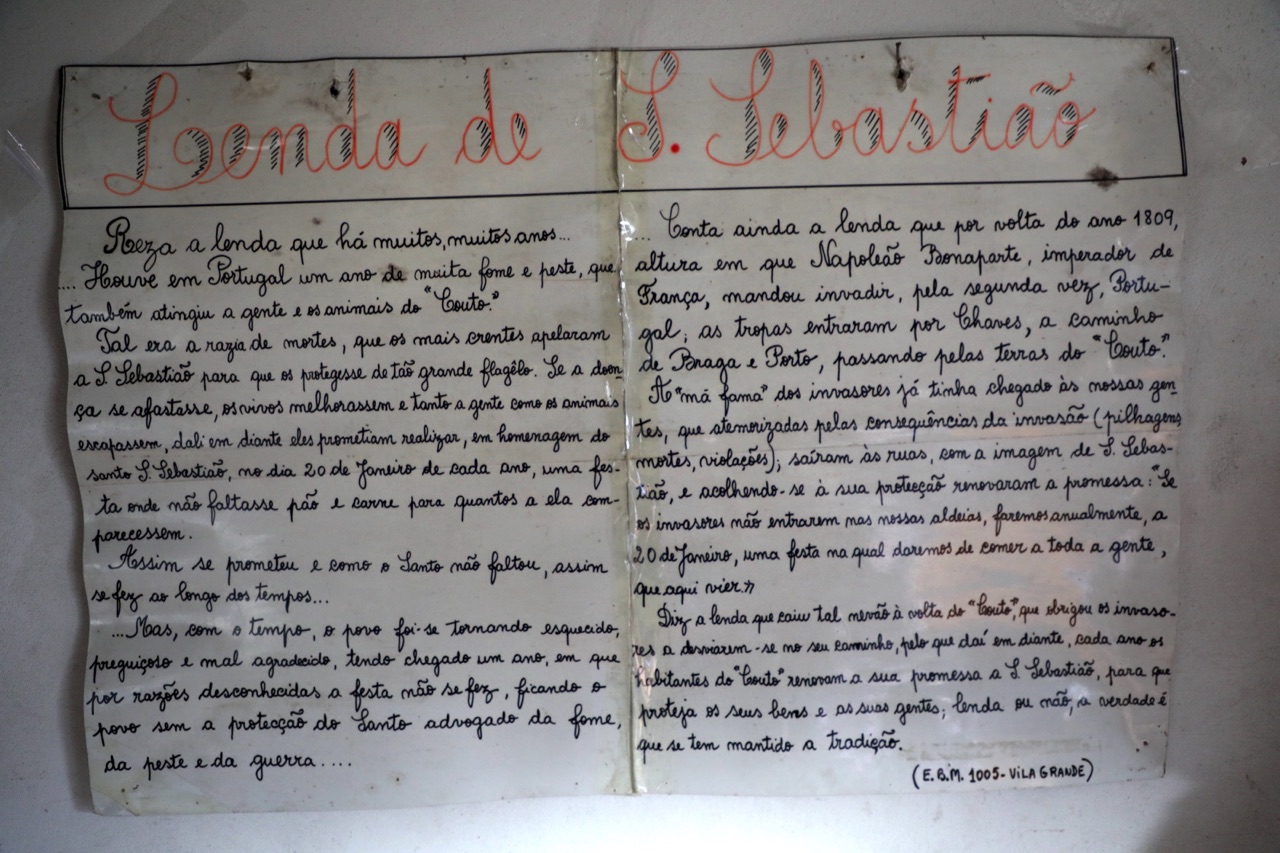 Lenda de S. Sebastião
Reza a lenda que há muitos, muitos anos...
.... Houve em Portugal um ano de muita fome e peste, que
também atingiu a gente e os animais do "Couto".
Tal era a razia de mortes, que os mais crentes apelaram
a S. Sebastião para que os protegesse de tão grande flagêlo. Se a doen-
ça se afastasse, os vivos melhorassem e tanto a gente como os animais
escapassem, dali em diante eles prometiam realizar, em homenagem do
santo S. Sebastião, no dia 20 de Janeiro de cada ano, uma fes-
ta onde não faltasse pão e carne para quantos a ela com-
parecessem.
Assim se prometeu e como o Santo não faltou, assim
se fez ao longo dos tempos...
...Mas, com o tempo, o povo foi-se tornando esquecido,
preguiçoso e mal agradecido, tendo chegado um ano, em que
por razões desconhecidas a festa não se fez, ficando o
povo sem a protecção do Santo advogado da fome,
da peste e da guerra....
... Conta ainda a lenda que por volta do ano 1809,
altura em que Napoleão Bonaparte, imperador de
França, mandou invadir, pela segunda vez, Portu-
gal; as tropas entraram por Chaves, a caminho
de Braga e Porto, passando pelas terras do "Couto".
A "má fama" dos invasores já tinha chegado às nossas gen-
tes, que atemorizadas pelas consequências da invasão (pilhagens,
mortes, violações); saíram às ruas, com a imagem de S. Sebas-
tião, e acolhendo-se à sua protecção renovaram a promessa: "Se
os invasores não entrarem nas nossas aldeias, faremos anualmente, a
20 de Janeiro, uma festa na qual daremos de comer a toda a gente,
que aqui vier.»
Diz a lenda que caiu tal nevão à volta do "Couto", que obrigou os invaso-
res a desviarem-se no seu caminho, pelo que daí em diante, cada ano os
habitantes do "Couto" renovam a sua promessa a S. Sebastião, para que
proteja os seus bens e as suas gentes; lenda ou não, a verdade é
que se tem mantido a tradição.
(E.B.M. 1005-VILA GRANDE)